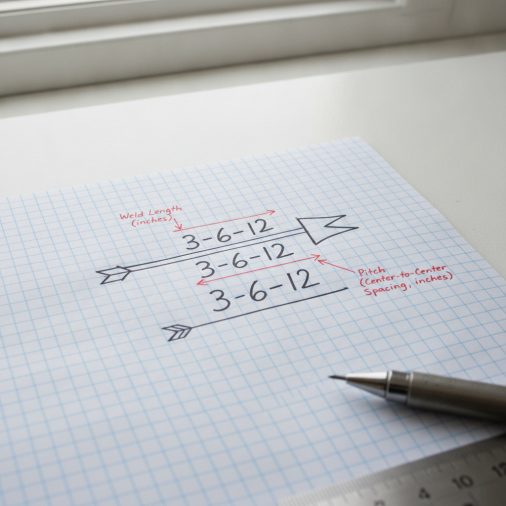 Weld Length
(inches)
3-6-12
3-6-12
3-6-12
Pitch
(Center-to-Center
Spacing, inches)
4
10